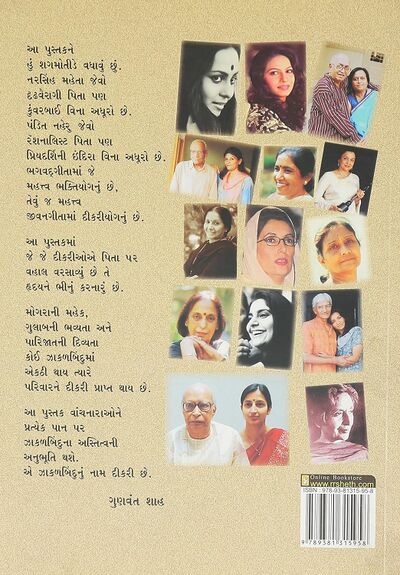 આ પુસ્તકને
હું શગમોતીડે વધાવું છું.
નરસિંહ મહેતા જેવો
દૃઢવૈરાગી પિતા પણ
કુંવરબાઈ વિના અધૂરો છે.
પંડિત નહેરુ જેવો
રેશનાલિસ્ટ પિતા પણ
પ્રિયદર્શિની ઇંદિરા વિના અધૂરો છે.
ભગવદ્ગીતામાં જે
મહત્ત્વ ભક્તિયોગનું છે,
તેવું જ મહત્ત્વ
જીવનગીતામાં દીકરીયોગનું છે.
આ પુસ્તકમાં
જે જે દીકરીઓએ પિતા પર
વહાલ વરસાવ્યું છે તે
હૃદયને ભીનું કરનારું છે.
મોગરાની મહેક,
ગુલાબની ભવ્યતા અને
પારિજાતની દિવ્યતા
કોઈ ઝાકળબિંદુમાં
એકઠી થાય ત્યારે
પરિવારને દીકરી પ્રાપ્ત થાય છે.
આ પુસ્તક વાંચનારાઓને
પ્રત્યેક પાન પર
ઝાકળબિંદુના અસ્તિત્વની
અનુભૂતિ થશે.
એ ઝાકળબિંદુનું નામ દીકરી છે.
ગુણવંત શાહ
Online Bookstore
www.rrsheth.com
ISBN 978-93-81315-95-8
9 789381 315958